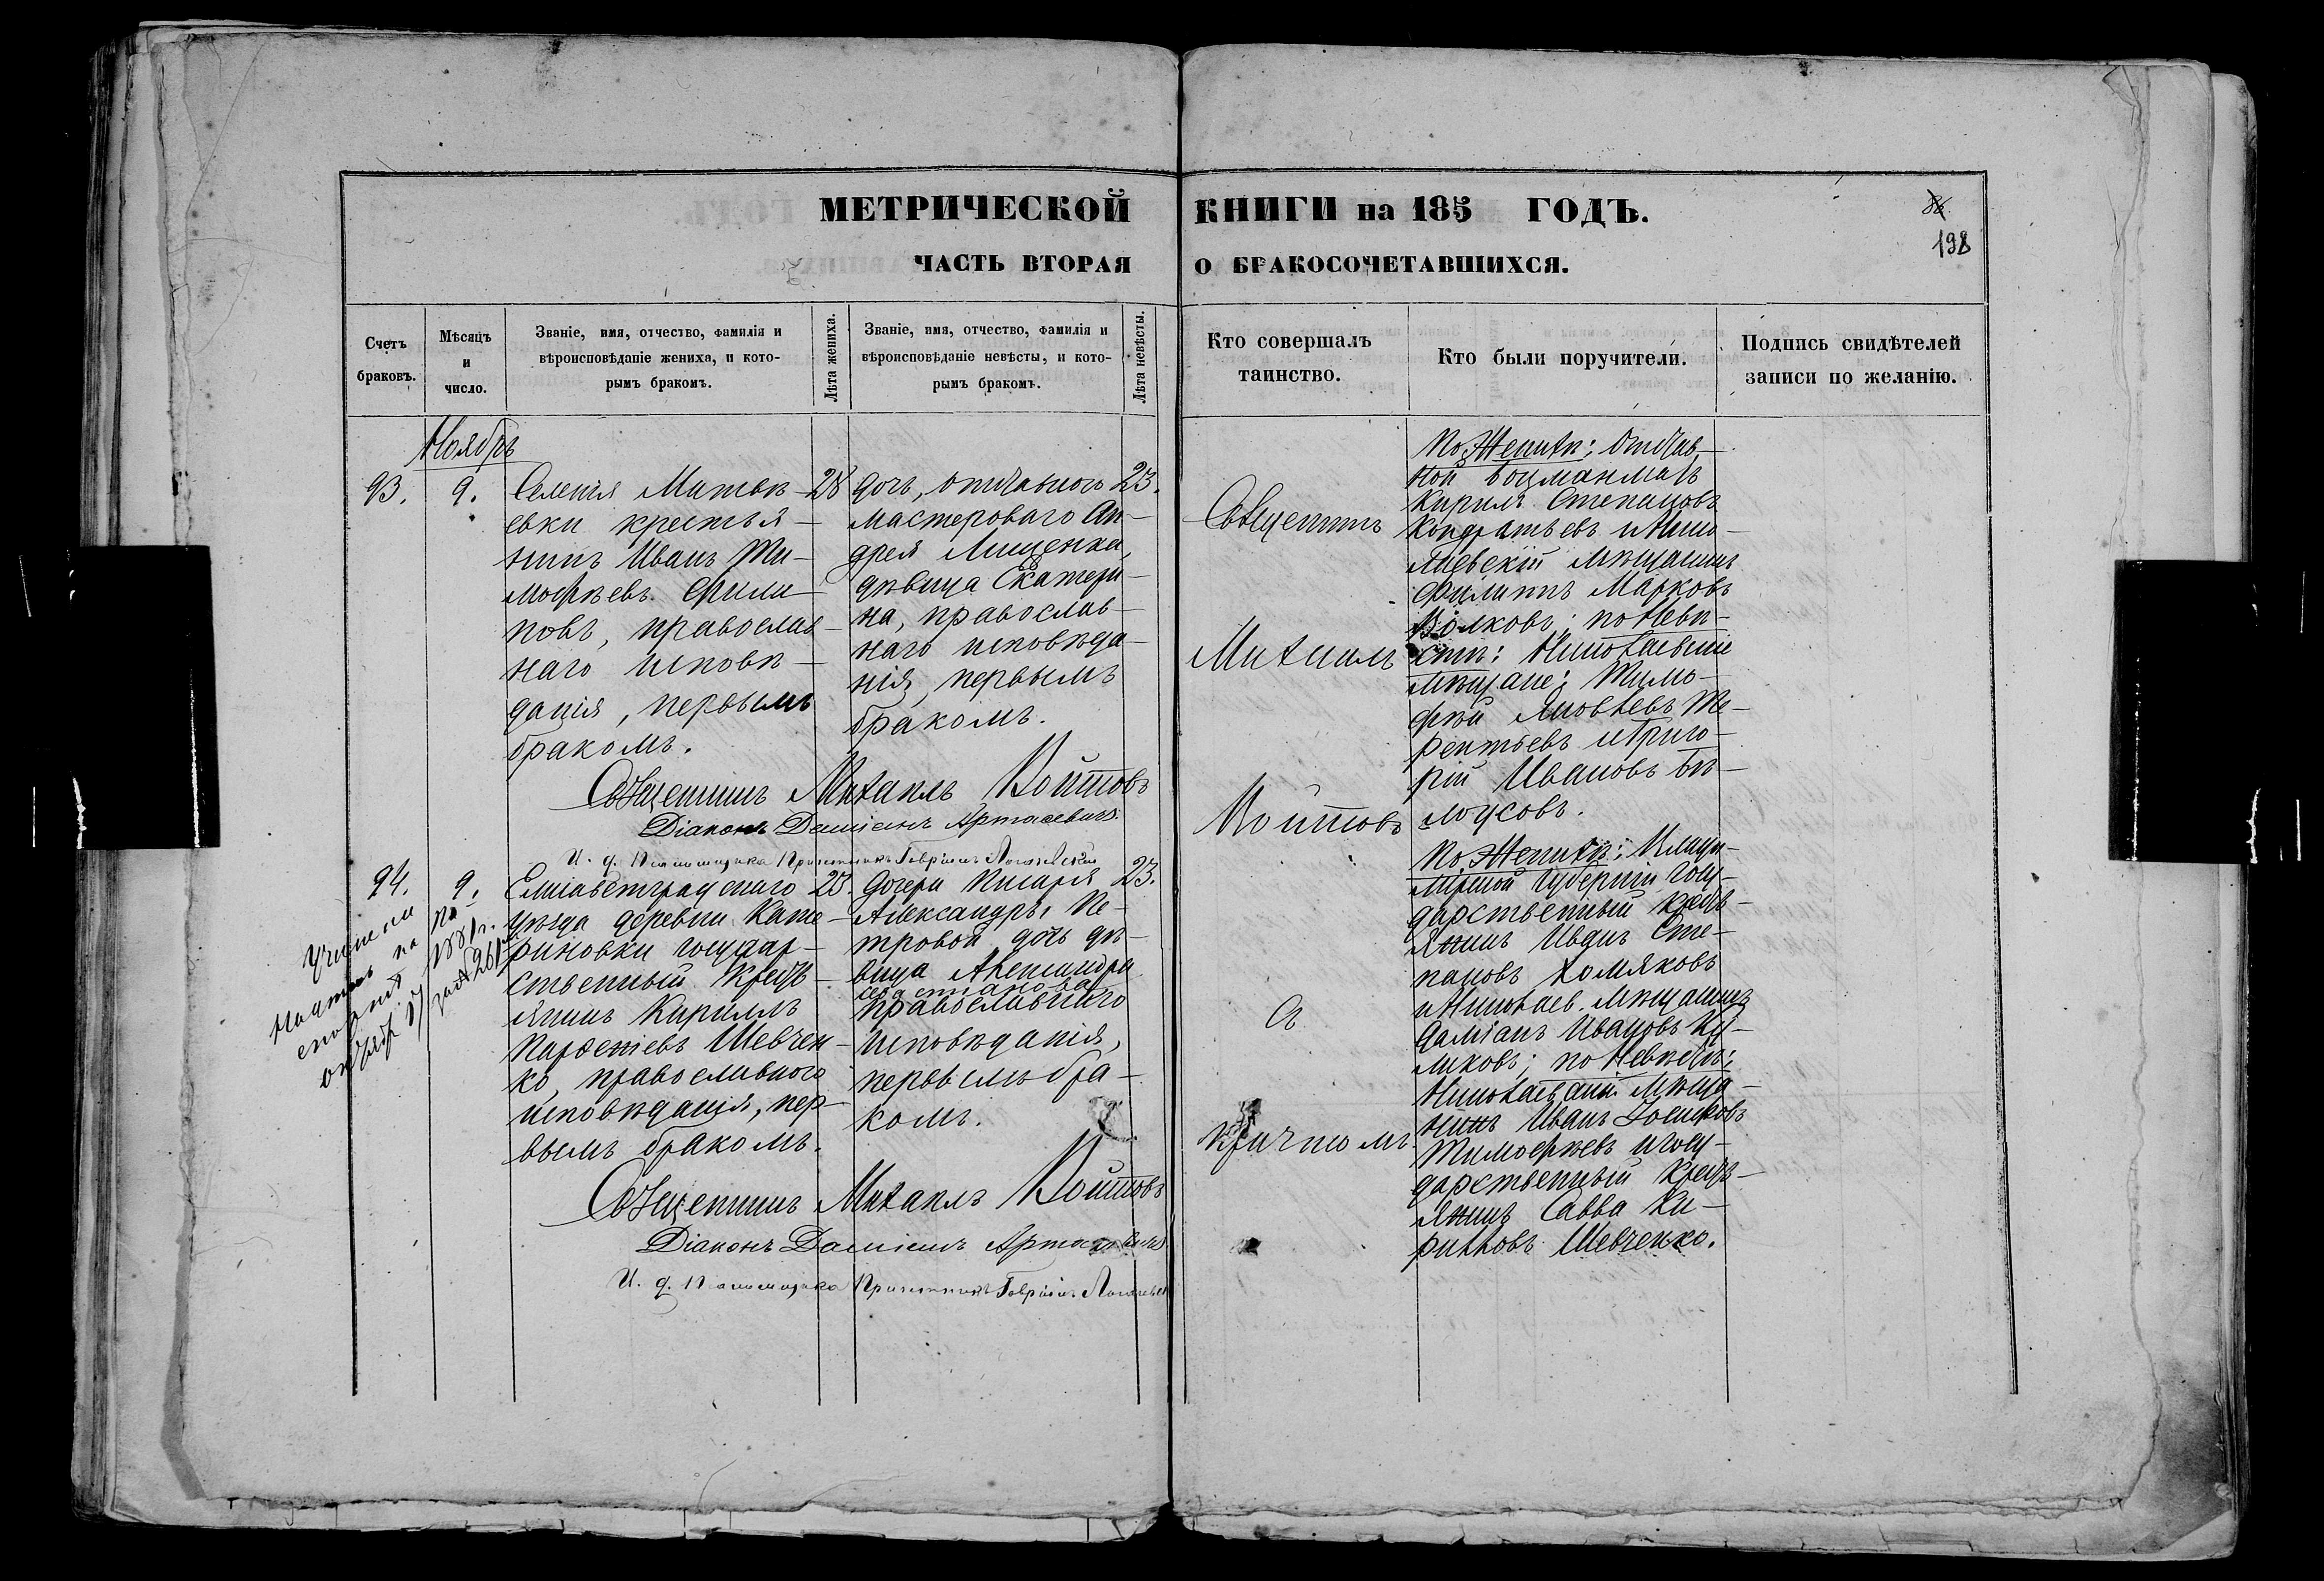 МЕТРИЧЕСКОЙ КНИГИ на 185 ГОДЪ.
198
ЧАСТЬ ВТОРАЯ О БРАКОСОЧЕТАВШИХСЯ.
Счетъ
браковъ.
Мѣсяцъ
и
число.
Званіе, имя, отчество, фамилія и
вѣроисповѣданіе жениха, и кото-
рымъ бракомъ.
Лѣта жениха.
Званіе, имя, отчество, фамилія и
вѣроисповѣданіе невѣсты, и кото-
рымъ бракомъ.
Лѣта невѣсты.
Кто совершалъ
таинство.
Кто были поручители.
Подпись свидѣтелей
записи по желанію.
Ноябрь
93.
9.
Селенія Матвѣ-
евки крестья-
нинъ Иванъ Ти-
мофѣевъ Фили-
повъ, православ-
наго исповѣ-
данія, первымъ
бракомъ.
28
дочь, отставного
мастероваго Ан-
дрея Лищенка,
дѣвица Екатери-
на, православ-
наго исповѣда-
нія, первымъ
бракомъ.
23.
Священникъ
Михаилъ
Войтовъ
По Женихѣ: отстав-
ной боцманматъ
Кирилъ Степановъ
Кондратьевъ и Нико-
лаевскій мѣщанинъ
Филиппъ Марковъ
Волковъ; по Невѣ-
стѣ: Николаевскіе
мѣщане: Тимо-
фѣй Яковлевъ Те-
рентьевъ и Григо-
рій Ивановъ Бѣ-
лоусовъ.
Священникъ Михаилъ Войтовъ
Діаконъ Даміанъ Арташевичъ.
И. д. Паламщика Причетникъ Гавріилъ
94.
9.
Елисаветградскаго
уѣзда деревни Кате-
риновки государ-
ственный кресть-
янинъ Кириллъ
Парфеніевъ Шевчен-
ко, православного
исповѣданія, пер-
вымъ бракомъ.
25.
дочери писаря
Александры Пе-
тровой дочь дѣ-
вица Александра
Севастіанова
православнаго
исповѣданія,
первымъ бра-
комъ.
23.
съ
причтомъ.
По Женихѣ: Влади-
мірской губерніи госу-
дарственный кресть-
янинъ Иванъ Сте-
пановъ Хомяковъ
и Николаев. мѣщанинъ
Даміанъ Ивановъ Ку-
ликовъ; по Невѣстѣ:
Николаевскій мѣща-
нинъ Иванъ
Тимофѣевъ и госу-
дарственный кресть-
янинъ Савва Ки-
рилловъ Шевченко.
Священникъ Михаилъ Войтовъ
Діаконъ Даміанъ Арташевичъ
И. д. Паламщика Причетникъ Гавріилъ